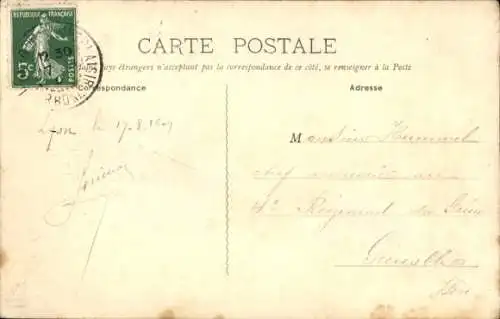 RÉPUBLIQUE FRANÇAISE
5c POSTES
RHÔNE
CARTE POSTALE
pays étrangers n'acceptant pas la correspondance de ce côté, se renseigner à la Poste
Correspondance
Adresse
Lyon le 17.8.1907
Monsieur Hummel
chef
4e Régiment du Génie
Grenoble
Isère